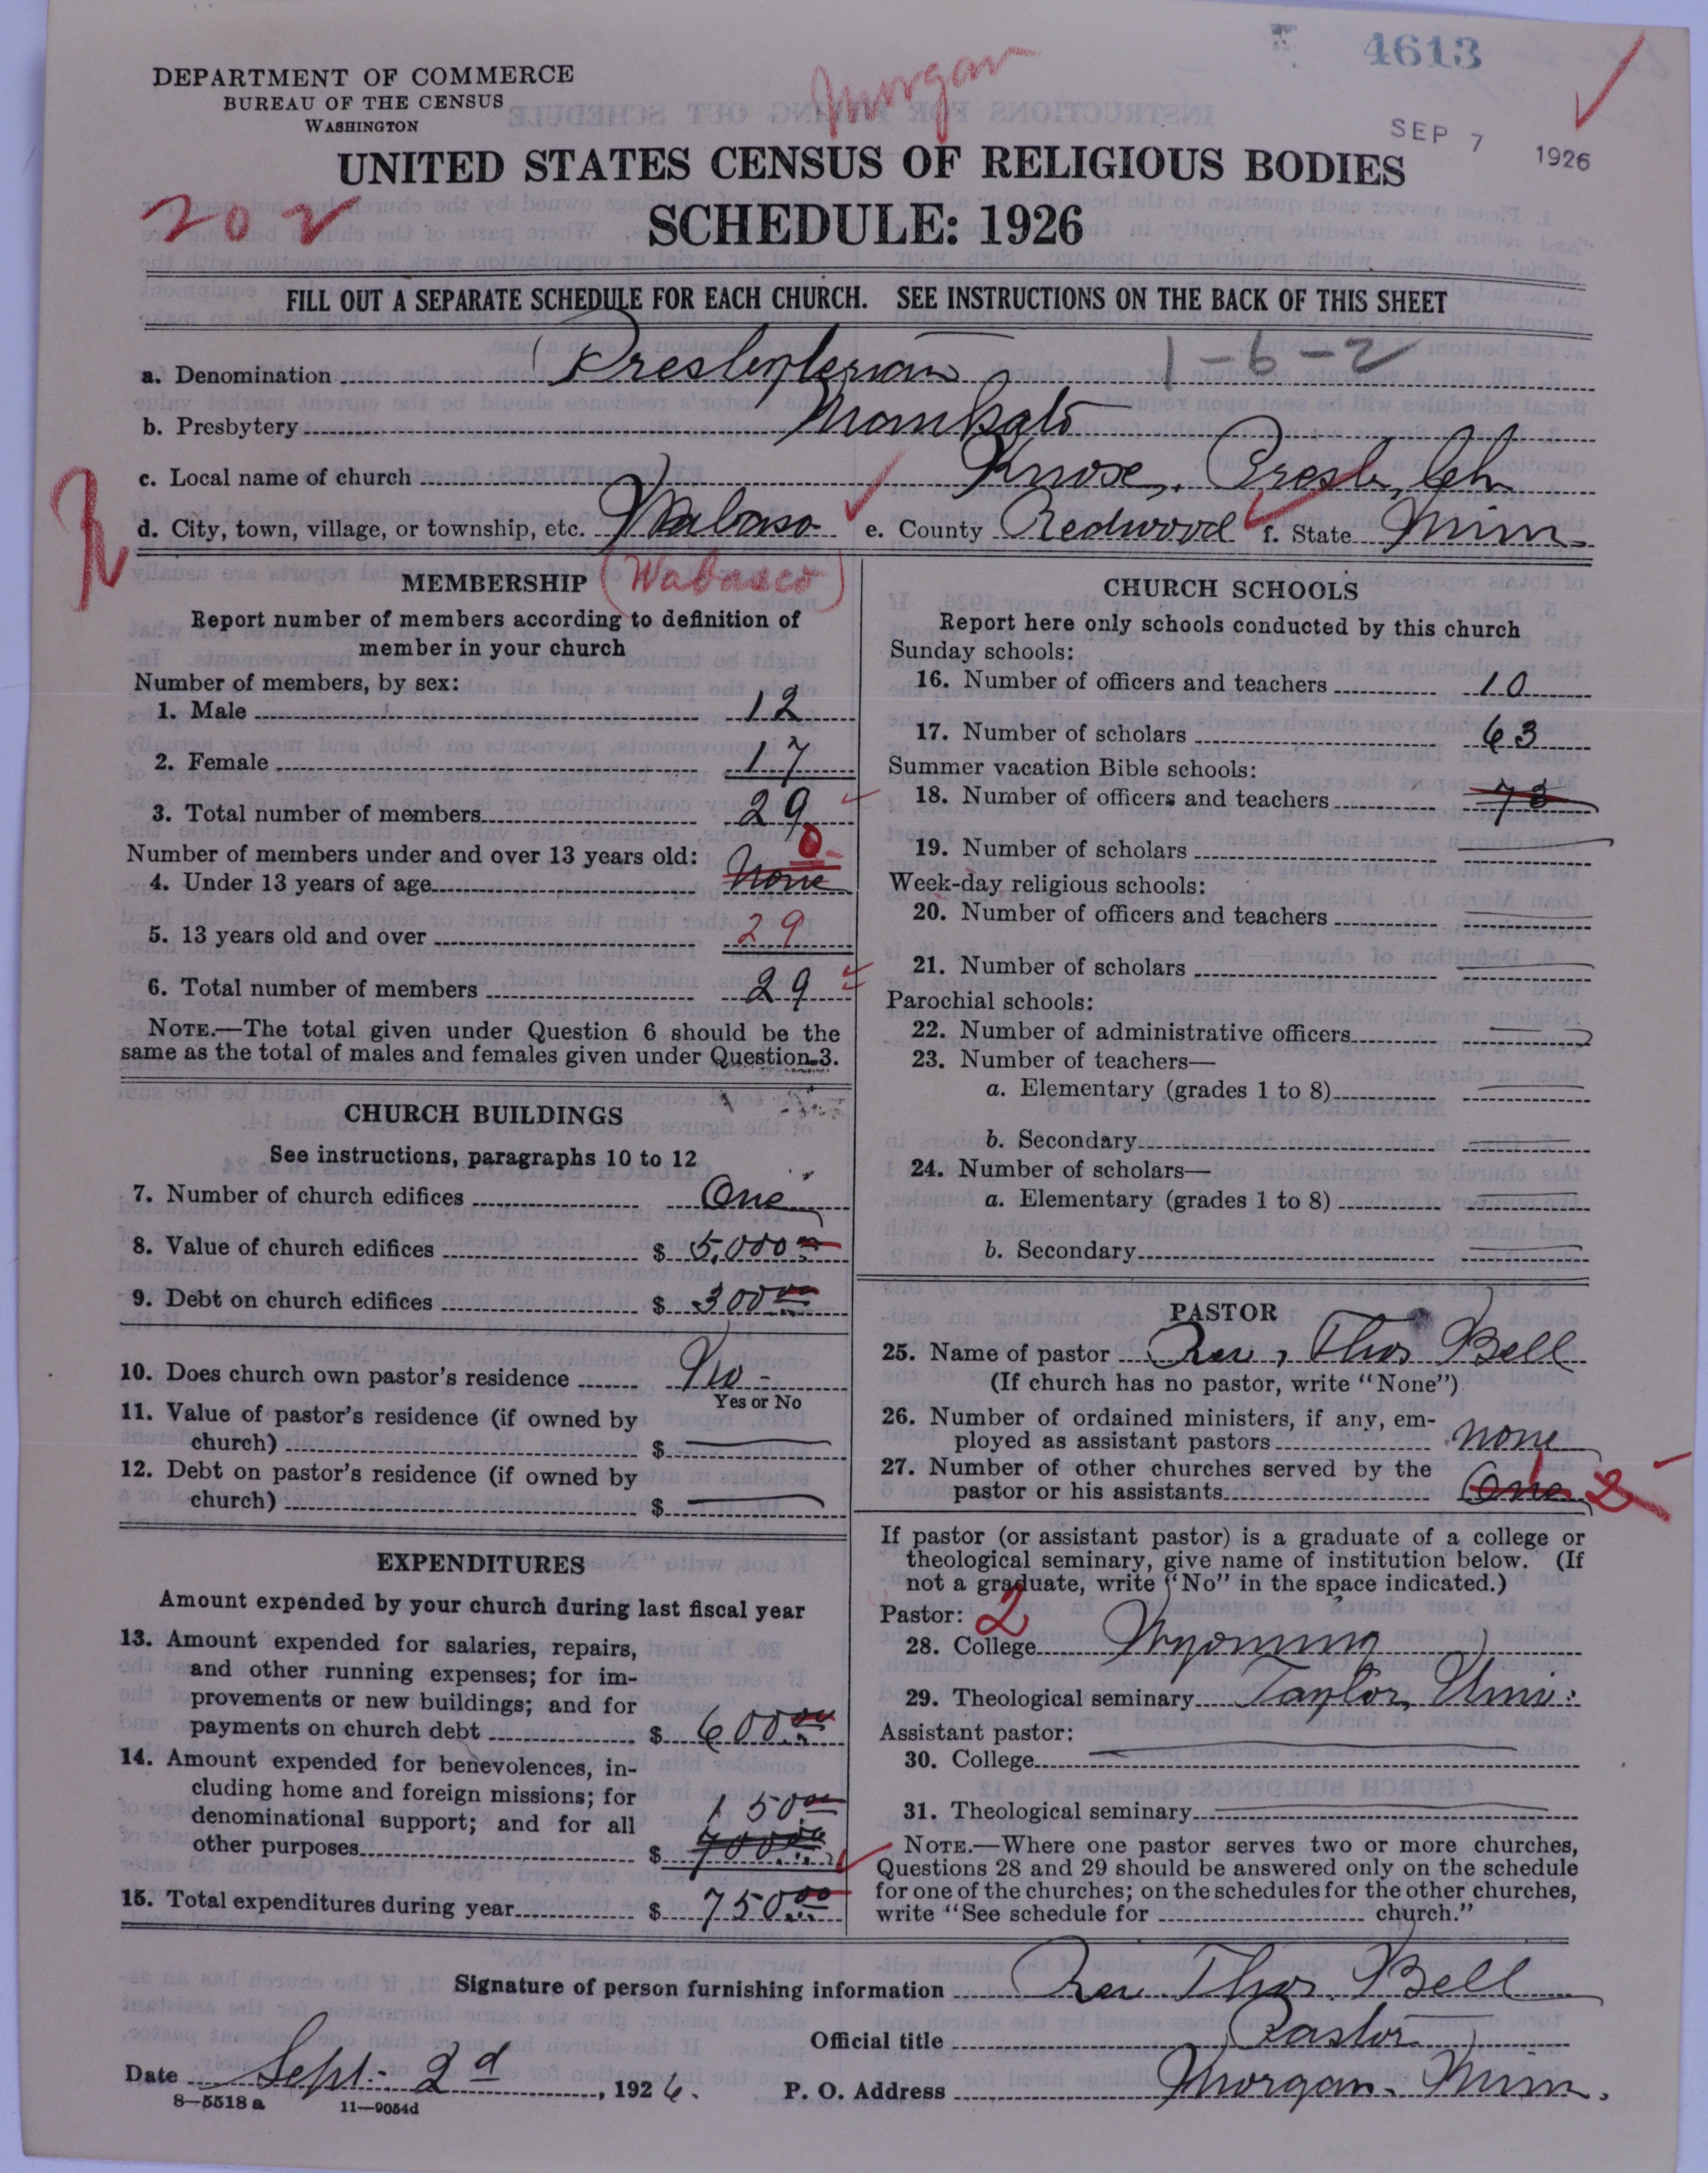 4613
DEPARTMENT OF COMMERCE
BUREAU OF THE CENSUS
WASHINGTON
Morgan
SEP 7 1926
UNITED STATES CENSUS OF RELIGIOUS BODIES
202
SCHEDULE: 1926
FILL OUT A SEPARATE SCHEDULE FOR EACH CHURCH. SEE INSTRUCTIONS ON THE BACK OF THIS SHEET
a. Denomination Presbyterian 1-6-2
b. Presbytery Mankato
c. Local name of church Knox, Presb, Ch
d. City, town, village, or township, etc. Wabaso e. County Redwood f. State Minn.
MEMBERSHIP (Wabasco)
Report number of members according to definition of
member in your church
Number of members, by sex:
1. Male 12
2. Female 17
3. Total number of members 29
Number of members under and over 13 years old: 0
4. Under 13 years of age none
5. 13 years old and over 29
6. Total number of members 29
NOTE.—The total given under Question 6 should be the
same as the total of males and females given under Question 3.
CHURCH BUILDINGS
See instructions, paragraphs 10 to 12
7. Number of church edifices One
8. Value of church edifices $ 5,000 00
9. Debt on church edifices $ 300 00
10. Does church own pastor's residence No -
Yes or No
11. Value of pastor's residence (if owned by
church) $
12. Debt on pastor's residence (if owned by
church) $
EXPENDITURES
Amount expended by your church during last fiscal year
13. Amount expended for salaries, repairs,
and other running expenses; for im-
provements or new buildings; and for
payments on church debt $ 600 00
14. Amount expended for benevolences, in-
cluding home and foreign missions; for
denominational support; and for all 150 00
other purposes $ 700 00
15. Total expenditures during year $ 750 00
CHURCH SCHOOLS
Report here only schools conducted by this church
Sunday schools:
16. Number of officers and teachers 10
17. Number of scholars 63
Summer vacation Bible schools:
18. Number of officers and teachers 73
19. Number of scholars
Week-day religious schools:
20. Number of officers and teachers
21. Number of scholars
Parochial schools:
22. Number of administrative officers
23. Number of teachers—
a. Elementary (grades 1 to 8)
b. Secondary
24. Number of scholars—
a. Elementary (grades 1 to 8)
b. Secondary
PASTOR
25. Name of pastor Rev, Thos Bell
(If church has no pastor, write "None")
26. Number of ordained ministers, if any, em-
ployed as assistant pastors none
27. Number of other churches served by the
pastor or his assistants One 2
If pastor (or assistant pastor) is a graduate of a college or
theological seminary, give name of institution below. (If
not a graduate, write "No" in the space indicated.)
Pastor: 2
28. College Wyoming
29. Theological seminary Taylor, Univ:
Assistant pastor:
30. College
31. Theological seminary
NOTE.—Where one pastor serves two or more churches,
Questions 28 and 29 should be answered only on the schedule
for one of the churches; on the schedules for the other churches,
write "See schedule for church."
Signature of person furnishing information Rev. Thos. Bell
Official title Pastor
Date Sept. 2d, 1926. P. O. Address Morgan. Minn.
8—5518 a 11—9054d